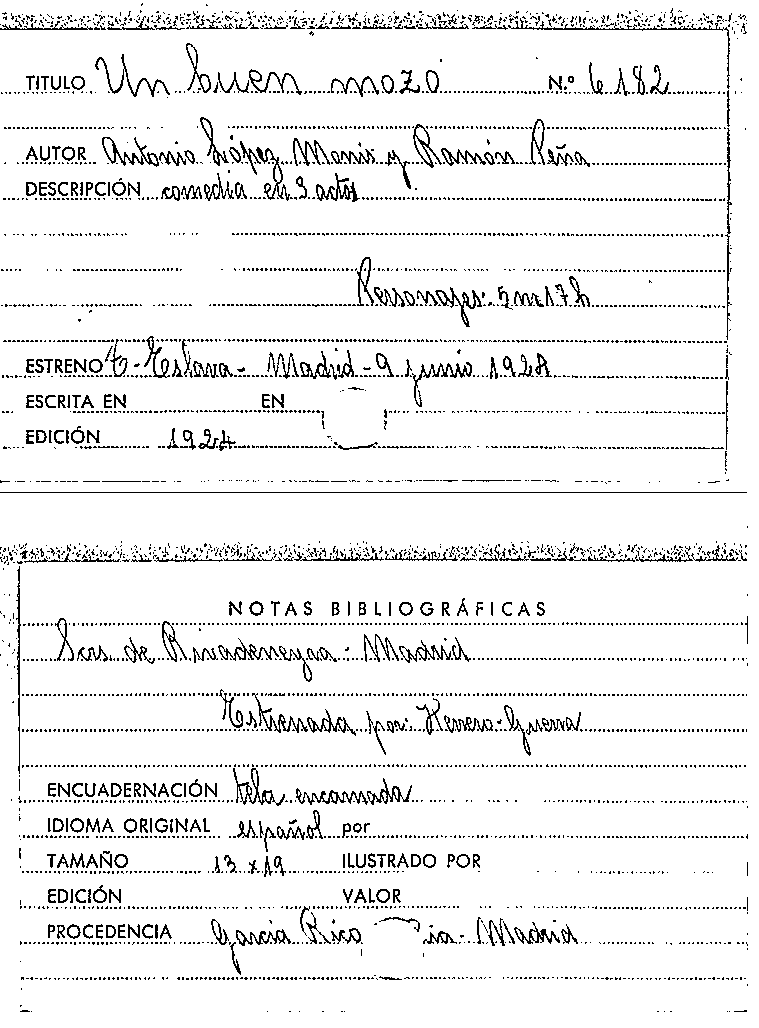 TITULO Un buen mozo N.º 6182
AUTOR Antonio López Monis y Ramón Peña
DESCRIPCIÓN comedia en 3 actos
Personajes: 5m 17h
ESTRENO T-Eslava- Madrid-9 junio 1924
ESCRITA EN EN
EDICIÓN 1924
NOTAS BIBLIOGRÁFICAS
Scrs. de Rivadeneyra- Madrid
Estrenada por: Herrero-Guerra
ENCUADERNACIÓN tela encarnada
IDIOMA ORIGINAL español por
TAMAÑO 13 x 19 ILUSTRADO POR
EDICIÓN VALOR
PROCEDENCIA García Rico ia- Madrid